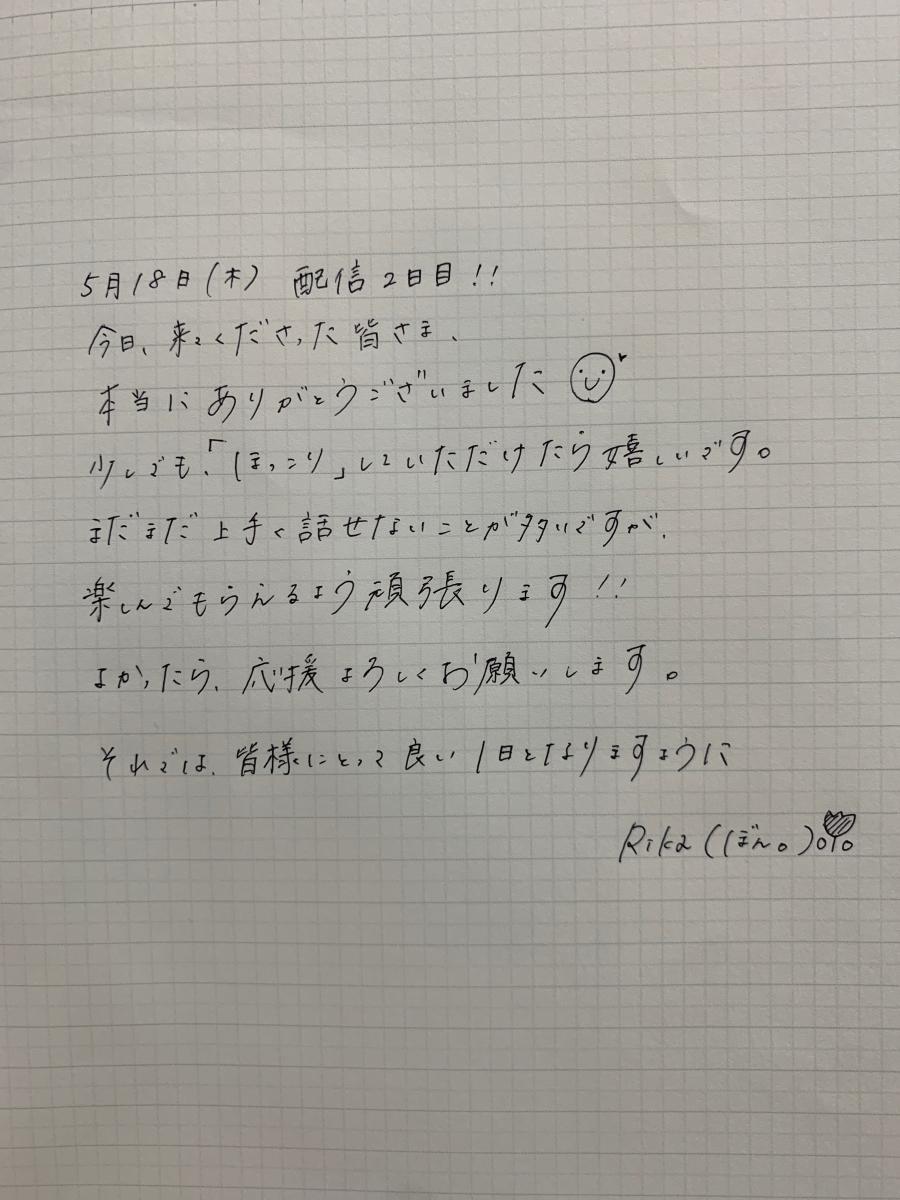 5月18日(木) 配信2日目!!
今日、来てくださった皆さま、
本当にありがとうございました
少しでも、「ほっこり」していただけたら嬉しいです。
まだまだ上手く話せないことが多いですが、
楽しんでもらえるよう頑張ります!!
よかったら、応援よろしくお願いします。
それでは、皆様にとって良い1日となりますように
Rika (ぼん。)